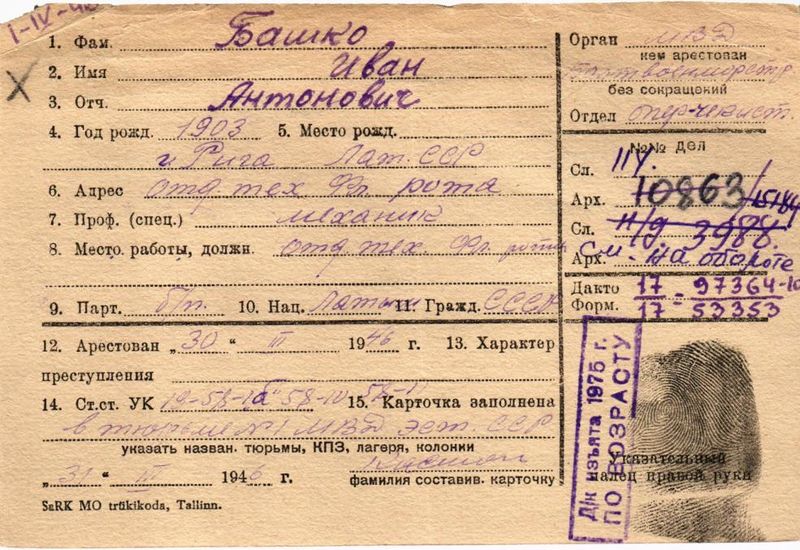 1-IV-46
1. Фам. Башко
2. Имя Иван
3. Отч. Антонович
4. Год рожд. 1903 5. Место рожд.
г. Рига Лат.ССР
6. Адрес отд тех рота
7. Проф. (спец.) механик
8. Место. работы, должн. отд тех.
9. Парт. б/п. 10. Нац. Латыш 11. Гражд. СССР
12. Арестован „30“ III 1946 г. 13. Характер
преступления
14. Ст.ст. УК 19-58-1б 58-10 58-11 15. Карточка заполнена
в тюрьме №1 МВД Эст. ССР
указать назван. тюрьмы, КПЗ, лагеря, колонии
„31“ III 1946 г.
фамилия составив. карточку
SaRK MO trükikoda, Tallinn.
Орган МВД
кем арестован
без сокращений
Отдел опер-чекист.
№№ дел
Сл. 114.
Арх. 10863
Сл. 11/9. 3988.
Арх. См. на обороте
Дакто 17-97364-10
Форм. 17-53353
Д/к изъята 1975 г.
ПО ВОЗРАСТУ
Указательный
палец правой руки